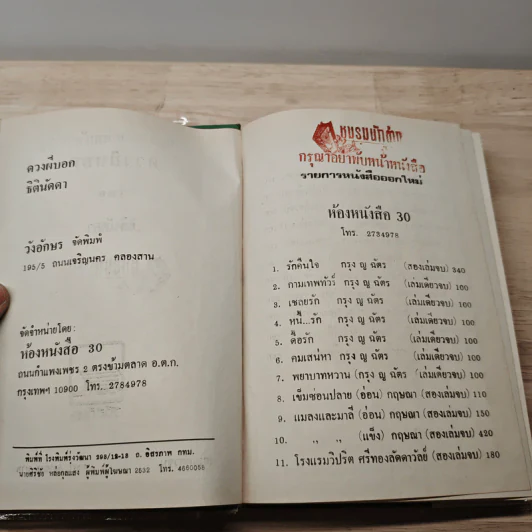 ดวงผีบอก
ธิตินัดดา
วังอักษร จัดพิมพ์
195/5 ถนนเจริญนคร คลองสาน
จัดจำหน่ายโดย:
ห้องหนังสือ 30
ถนนกำแพงเพชร 2 ตรงข้ามตลาด อ.ต.ก.
กรุงเทพฯ 10900 โทร. 2784978
พิมพ์ที่ โรงพิมพ์รุ่งวัฒนา 295/15-16 ถ. อิสรภาพ กทม.
ผู้พิมพ์ผู้โฆษณา 2532 โทร. 4660056
กรุณาอย่าพับหน้าหนังสือ
รายการหนังสือออกใหม่
ห้องหนังสือ 30
โทร. 2734978
1. รักคืนใจ กรุง ญ ฉัตร (สองเล่มจบ) 340
2. กามเทพทัวร์ กรุง ญ ฉัตร (เล่มเดียวจบ) 100
3. เชลยรัก กรุง ญ ฉัตร (เล่มเดียวจบ) 100
4. หนี้...รัก กรุง ญ ฉัตร (เล่มเดียวจบ) 100
5. ดื้อรัก กรุง ญ ฉัตร (เล่มเดียวจบ) 100
6. คมเสน่หา กรุง ญ ฉัตร (เล่มเดียวจบ) 100
7. พยาบาทหวาน (กรุง ญ ฉัตร (เล่มเดียวจบ) 100
8. เข็มซ่อนปลาย (อ่อน) กฤษณา (สองเล่มจบ) 110
9. แมลงและมาลี (อ่อน) กฤษณา (สองเล่มจบ) 150
10. " " (แข็ง) กฤษณา (สองเล่มจบ) 420
11. โรงแรมวิปริต ศรีทองลัดดาวัลย์ (สองเล่มจบ) 180